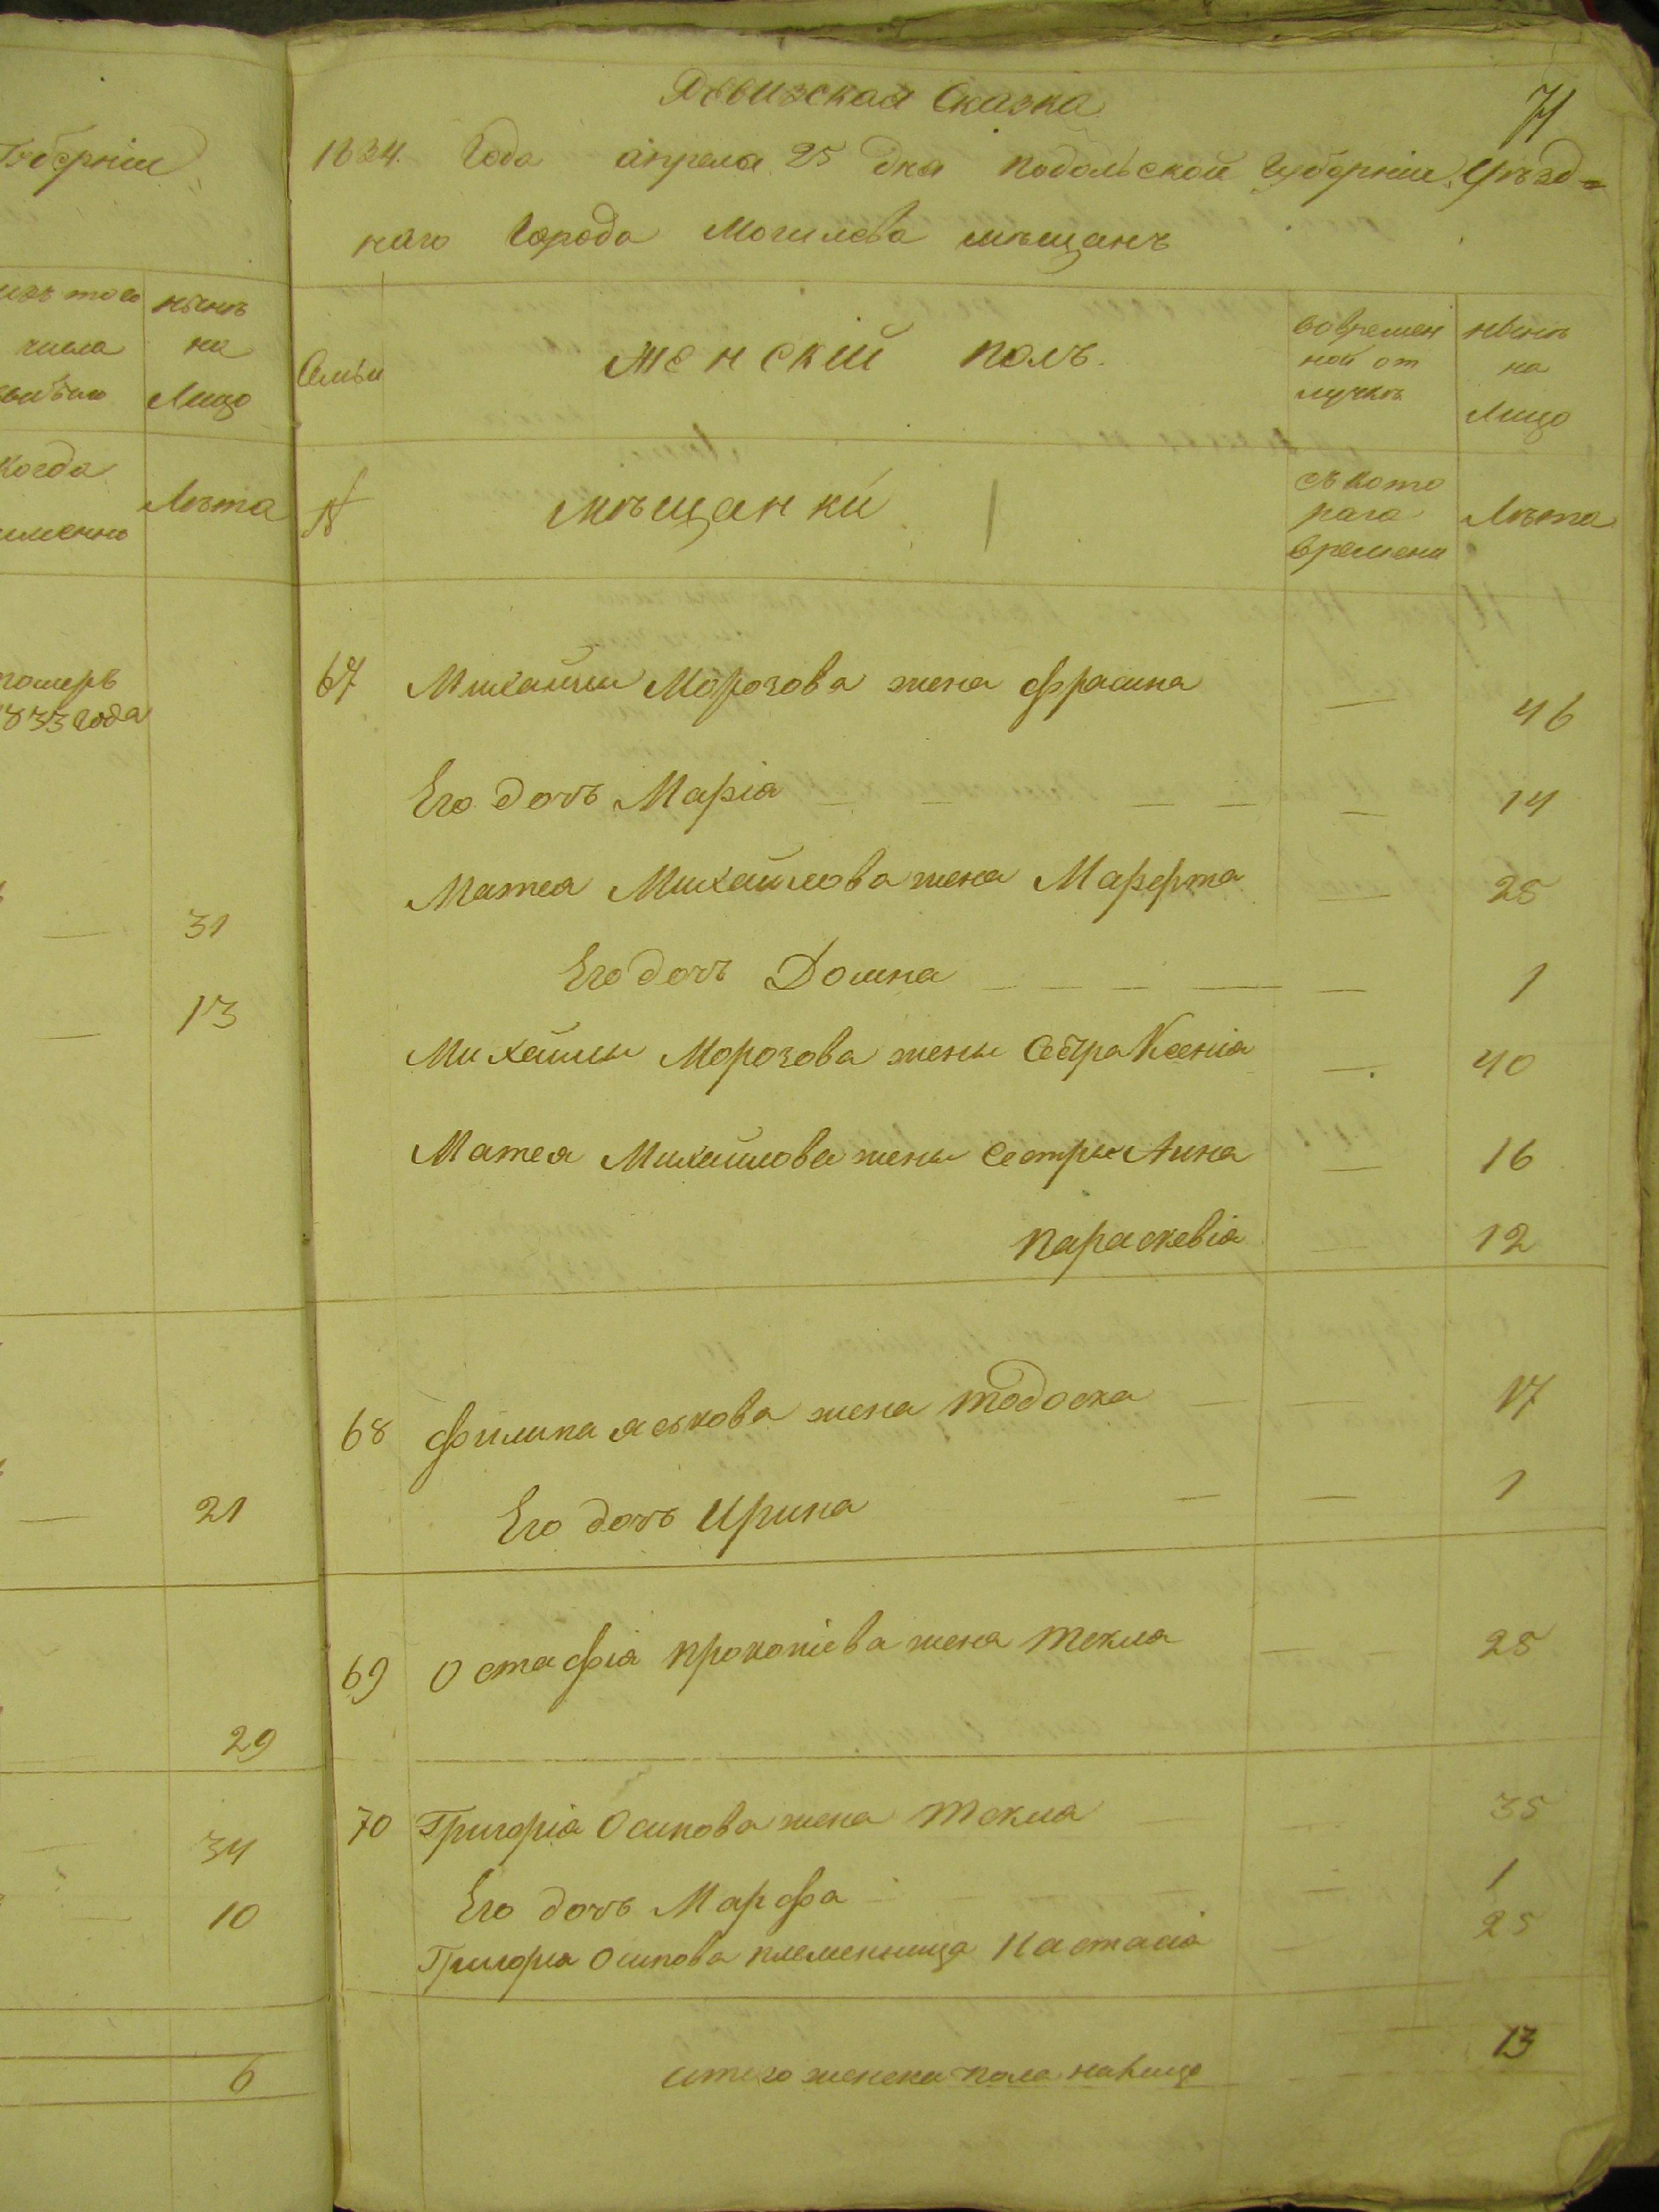 Губерніи
изъ того
числа
выбыло
нынѣ
на
Лицо
когда
именно
Лѣта
померъ
1833 года
31
13
21
29
34
10
6
Ревизская Сказка
71
1834. Года апреля 25 дня Подольской Губерніи, Уѣзд=
наго Города Могилева мѣщанъ
Семьи
Женскій полъ.
вовремен
ной от
лучкѣ
нынѣ
на
Лицо
№
мѣщанки
съ кото
раго
времени
Лѣта
67 Михайлы Морозова жена Фрасина — 46
Его дочь Марія — 14
Матея Михайлова жена Марфта — 25
Его дочь Домна — 1
Михайлы Морозова жены Сестра Ксенія — 40
Матея Михайлова жены сестры Анна — 16
Параскевія — 12
68 Филипа Яськова жена Тодоска — 17
Его дочь Ирина — 1
69 Остафія Прокопіева жена Текла — 25
70 Григорія Осипова жена Текла 35
Его дочь Марфа — 1
Григорія Осипова племенница Настасія — 25
итого женска пола налицо 13